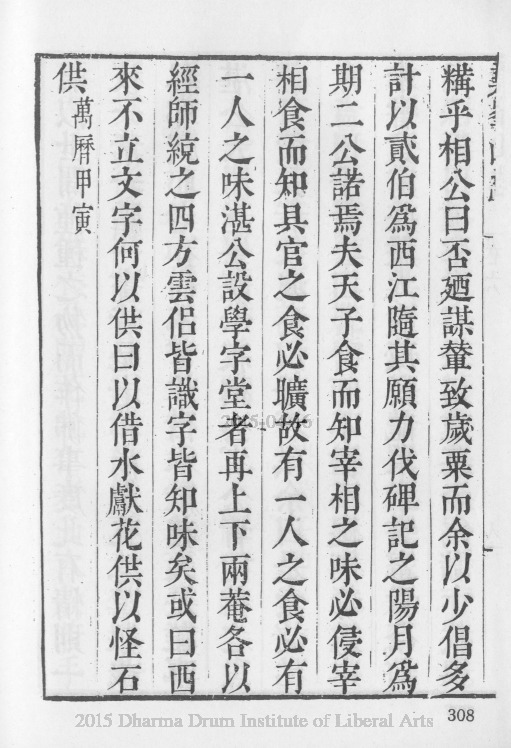 糒乎相公曰否廼謀輦致歲粟而余以少倡多
計以貳伯為西江隨其願力伐碑記之陽月為
期二公諾焉夫天子食而知宰相之味必侵宰
相食而知具官之食必曠故有一人之食必有
一人之味湛公設學字堂者再上下兩菴各以
經師統之四方雲侶皆識字皆知味矣或曰西
來不立文字何以供曰以借水獻花供以怪石
供萬曆甲寅
308
2015 Dharma Drum Institute of Liberal Arts